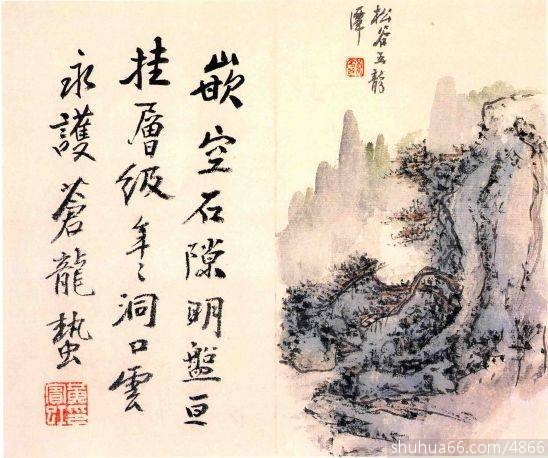 松谷五龍
潭
嵌空石隙明盤亘
挂層級年〻洞口雲
永護蒼龍蟄
shuhua66.com/4866